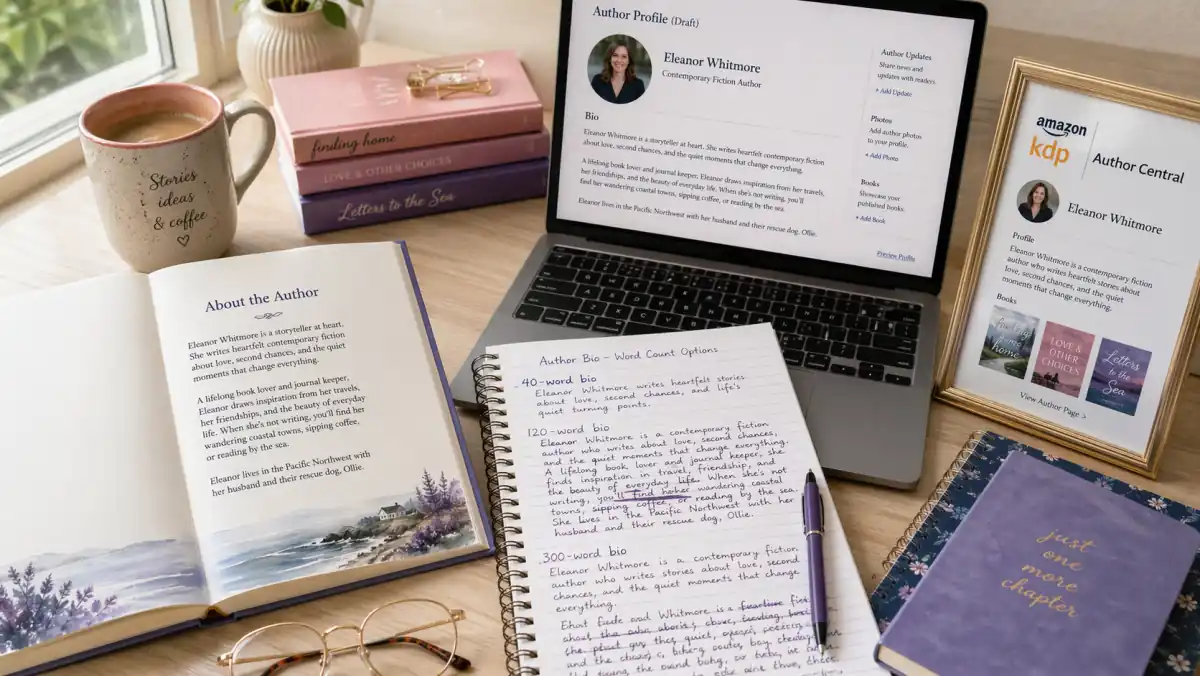 Stories
ideas
& coffee
finding home
LOVE & OTHER CHOICES
Letters to the Sea
About the Author
Eleanor Whitmore is a storyteller at heart.
She writes heartfelt contemporary fiction
about love, second chances, and the quiet
moments that change everything.
A lifelong book lover and journal keeper,
Eleanor draws inspiration from her travels,
her friendships, and the beauty of everyday
life. When she's not writing, you'll find her
wandering coastal towns, sipping coffee,
or reading by the sea.
Eleanor lives in the Pacific Northwest with
her husband and their rescue dog, Ollie.
Author Profile (Draft)
Eleanor Whitmore
Contemporary Fiction Author
Bio
Eleanor Whitmore is a storyteller at heart. She writes heartfelt contemporary fiction
about love, second chances, and the quiet moments that change everything.
A lifelong book lover and journal keeper, Eleanor draws inspiration from her travels,
her friendships, and the beauty of everyday life. When she's not writing, you'll
find her wandering coastal towns, sipping coffee, or reading by the sea.
Eleanor lives in the Pacific Northwest with her husband and their rescue dog, Ollie.
Author Updates
Share news and
updates with readers.
+ Add Update
Photos
Add author photos
to your profile.
+ Add Photo
Books
Showcase your
published books.
+ Add Book
Preview Profile
Author Bio - Word Count Options
40-word bio
Eleanor Whitmore writes heartfelt stories
about love, second chances, and life's
quiet turning points.
120-word bio
Eleanor Whitmore is a contemporary fiction
author who writes about love, second chances,
and the quiet moments that change everything.
A lifelong book lover and journal keeper, she
finds inspiration in travel, friendship, and
the beauty of everyday life. When she's not
writing, you'll find her wandering coastal
towns, sipping coffee, or reading by the sea.
She lives in the Pacific Northwest with her
husband and their rescue dog, Ollie.
300-word bio
Eleanor Whitmore is a contemporary fiction
author who writes stories about love, second
chances, and the quiet moments that change
everything.
Whitmore is a
amazon
kdp
Author Central
Eleanor Whitmore
Profile
Eleanor Whitmore is a contemporary fiction
author who writes heartfelt stories about
love, second chances, and the quiet
moments that change everything.
Books
home
LOVE &
OTHER
CHOICES
Letters
to the
Sea
View Author Page >
just
one
more
chapter